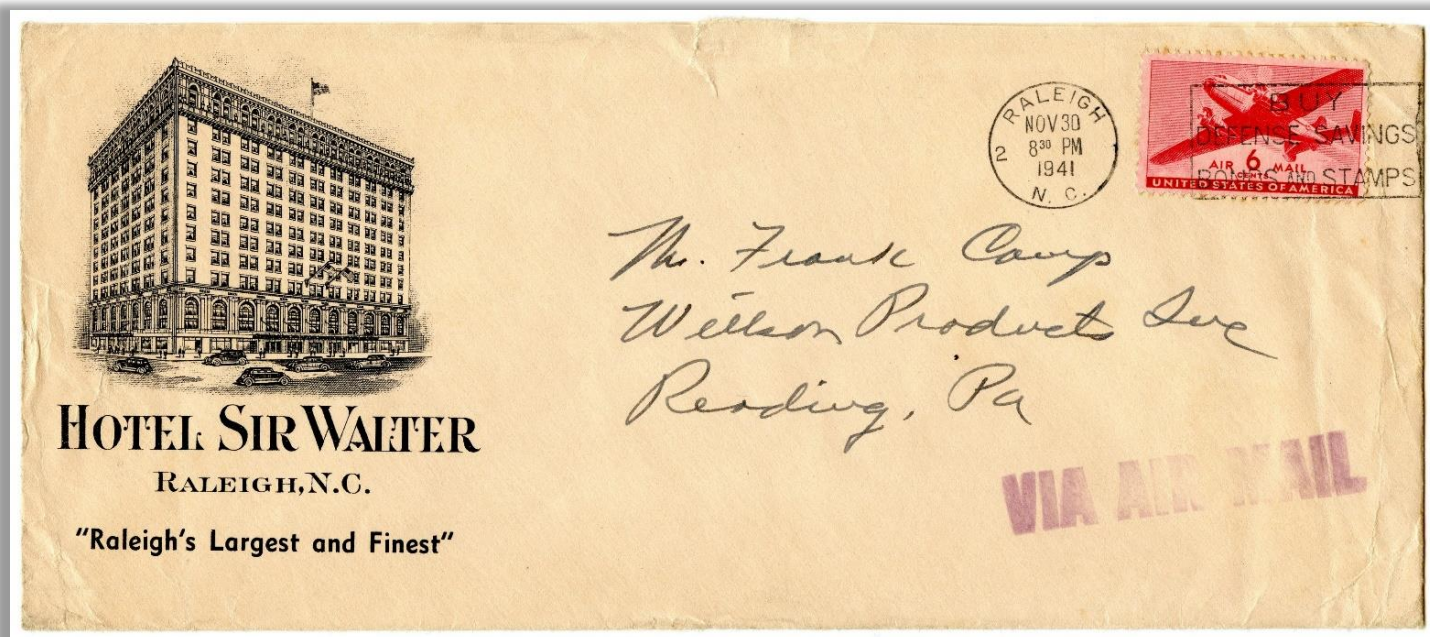 HOTEL SIR WALTER
RALEIGH, N.C.
"Raleigh's Largest and Finest"
RALEIGH
NOV 30
2 8³⁰ PM
1941
N. C.
BUY
DEFENSE SAVINGS
BONDS AND STAMPS
AIR 6 MAIL
CENTS
UNITED STATES OF AMERICA
Mr. Frank Camp
Willson Products Inc
Reading, Pa
VIA AIR MAIL